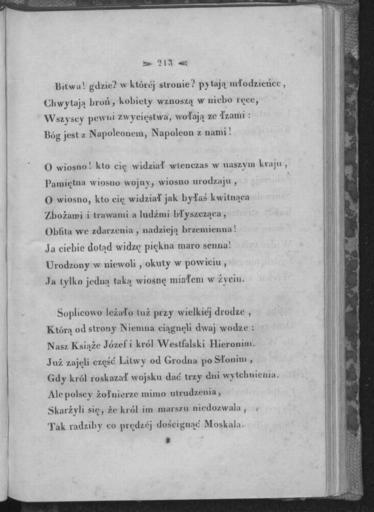 213
Bitwa! gdzie? w któréj stronie? pytają młodzieńce,
Chwytają broń, kobiety wznoszą w niebo ręce,
Wszyscy pewni zwycięstwa, wołają ze łzami:
Bóg jest z Napoleonem, Napoleon z nami!
O wiosno! kto cię widział wtenczas w naszym kraju,
Pamiętna wiosno wojny, wiosno urodzaju,
O wiosno, kto cię widział jak byłaś kwitnąca
Zbożami i trawami a ludźmi błyszcząca,
Obfita we zdarzenia, nadzieją brzemienna!
Ja ciebie dotąd widzę piękna maro senna!
Urodzony w niewoli, okuty w powiciu,
Ja tylko jedną taką wiosnę miałem w życiu.
Soplicowo leżało tuż przy wielkiéj drodze,
Którą od strony Niemna ciągnęli dwaj wodze:
Nasz Książe Józef i król Westfalski Hieronim.
Już zajęli część Litwy od Grodna po Słonim,
Gdy król roskazał wojsku dać trzy dni wytchnienia.
Ale polscy żołnierze mimo utrudzenia,
Skarżyli się, że król im marszu niedozwala,
Tak radziby co prędzéj doścignąć Moskala.